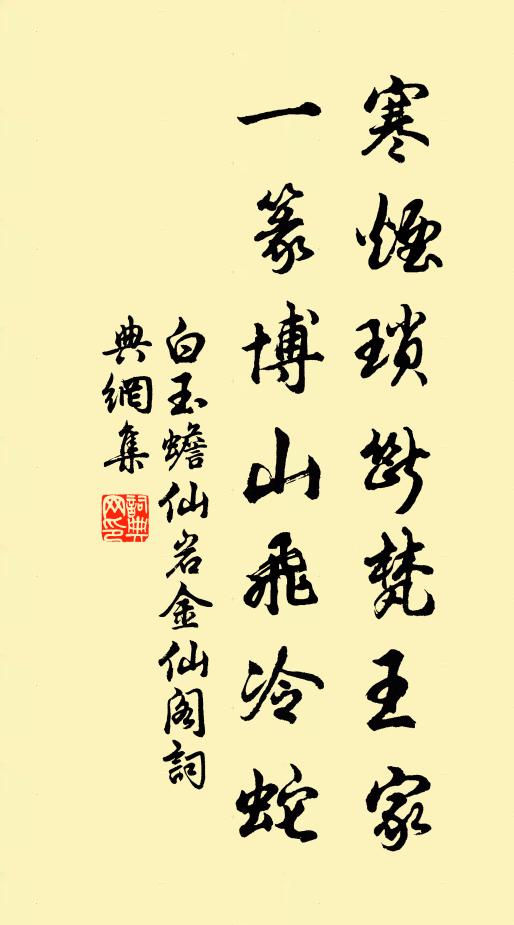 寒煙瑣斷梵王家
一篆博山飛冷蛇
白玉蟾仙岩金仙阁詞
典網集
詞典网印